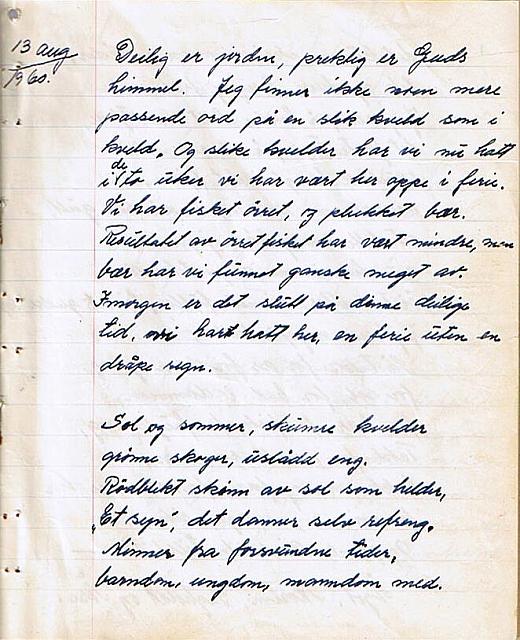 13 aug
1960.
Deilig er jorden, prektig er Guds
himmel. Jeg finner ikke noen mere
passende ord på en slik kveld som i
kveld. Og slike kvelder har vi nu hatt
i de to uker vi har vært her oppe i ferie.
Vi har fisket örret, og plukket bær.
Resultatet av örretfisket har vært mindre, men
bær har vi funnet ganske meget av.
Imorgen er det slutt på denne deilige
tid, vi har hatt her, en ferie uten en
dråpe regn.
Sol og sommer, skumre kvelder
grønne skoger, uslådd eng.
Rødblekt skinn av sol som helder,
"Et syn", det danner selv refreng.
Minner fra forsvundne tider,
barndom, ungdom, manndom med.